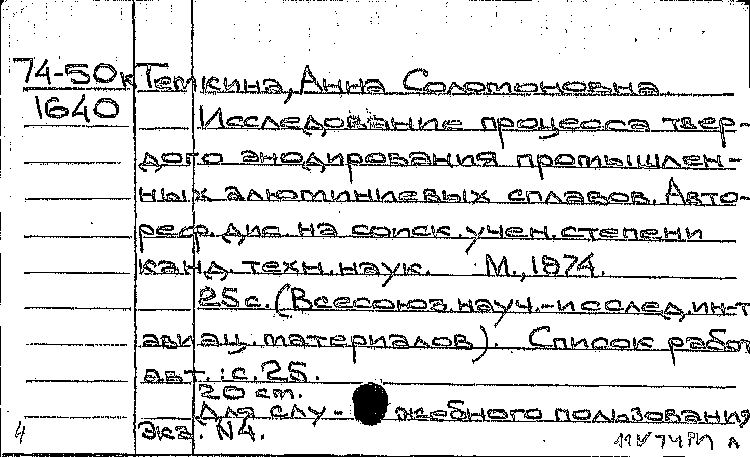 74-50к Темкина, Анна Соломоновна
1640 Исследование процесса твер-
дого анодирования промышлен-
ных алюминиевых сплавов. Авто-
реф. дис. на соиск. учен. степени
канд. техн. наук. М., 1874.
25 с. (Всесоюз. науч.-исслед. ин-т
авиац. материалов). Список работ
авт.: с. 25.
20 см.
Для слу- жебного пользования
4 Экз. N4.